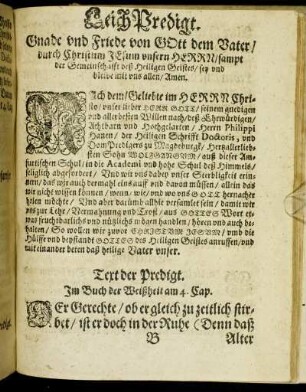 Leich Predigt.
Gnade vnd Friede von GOtt dem Vater/
durch Christum JEsum vnsern HERRN/ sampt
der Gemeinschafft deß Heiligen Geistes/ sey vnd
bleibe mit vns allen/ Amen.
NAch dem/ Geliebte im HERRN Chri-
sto/ vnser lieber HERR GOTT/ seinem gnedigen
vnd allerbesten Willen nach/ deß Ehrwürdigen/
Achtbarn vnd Hochgelarten/ Herrn Philippi
Hanen/ der Heiligen Schrifft Doctoris, vnd
Dom Predigers zu Magdeburgk/ Hertzallerliebs
sten Sohn WOLFGANGUM, auß dieser Am-
furtischen Schul/ in die Academi vnd hohe Schul deß Himmels/
seliglich abgefordert. Vnd wir vns dabey vnser Sterbligkeit erin-
nern/ das wir auch dermahl eins auß vnd davon müssen/ allein das
wir nicht wissen können/ wenn/ wie/ vnd wo vns GOTT hernacher
zihlen möchte/ Vnd aber darumb allhie versamlet sein/ damit wir
vns zur Lehr/ Vermahnunng vnd Trost/ aus GOTTES Wort et-
was feuchtbarlichs vnd nützlichs mögen handlen/ hören vnd auch be-
halten/ So wollen wir zuvor CHRISTUM JESUM/ vnd die
Hülffe vnd beystandt GOTTES des Heiligen Geistes anruffen/ vnd
mit einander beten daß heilige Vater vnser.
Text der Predigt.
Im Buch der Weißheit am 4. Cap.
DEr Gerechte/ ob er gleich zu zeitlich stir-
bet/ ist er doch in der Ruhe (Denn daß
B Alter